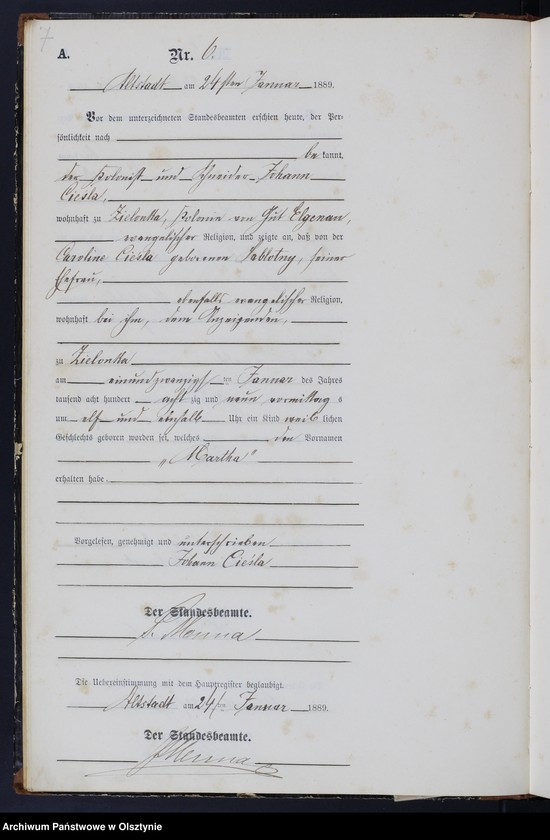 7
A.
Nr. 6.
Altstadt am 24sten Januar 1889.
Vor dem unterzeichneten Standesbeamten erschien heute, der Per-
sönlichkeit nach
be kannt,
der Kolonist und Schneider Johann
Cieśla,
wohnhaft zu Zielonka, Kolonie von Gut Elgenau,
evangelischer Religion, und zeigte an, daß von der
Caroline Cieśla geborenen Jablotny, seiner
Ehefrau,
ebenfalls evangelischer Religion,
wohnhaft bei ihm, dem Anzeigenden,
zu Zielonka
am einundzwanzigsten Januar des Jahres
tausend acht hundert acht zig und neun vormittag s
um elf und einhalb Uhr ein Kind weib lichen
Geschlechts geboren worden sei, welches den Vornamen
„Martha"
erhalten habe.
Vorgelesen, genehmigt und unterschrieben
Johann Cieśla
Der Standesbeamte.
Menna
Die Uebereinstimmung mit dem Hauptregister beglaubigt.
Altstadt am 24ten Januar 1889.
Der Standesbeamte.
Menna
Archiwum Państwowe w Olsztynie